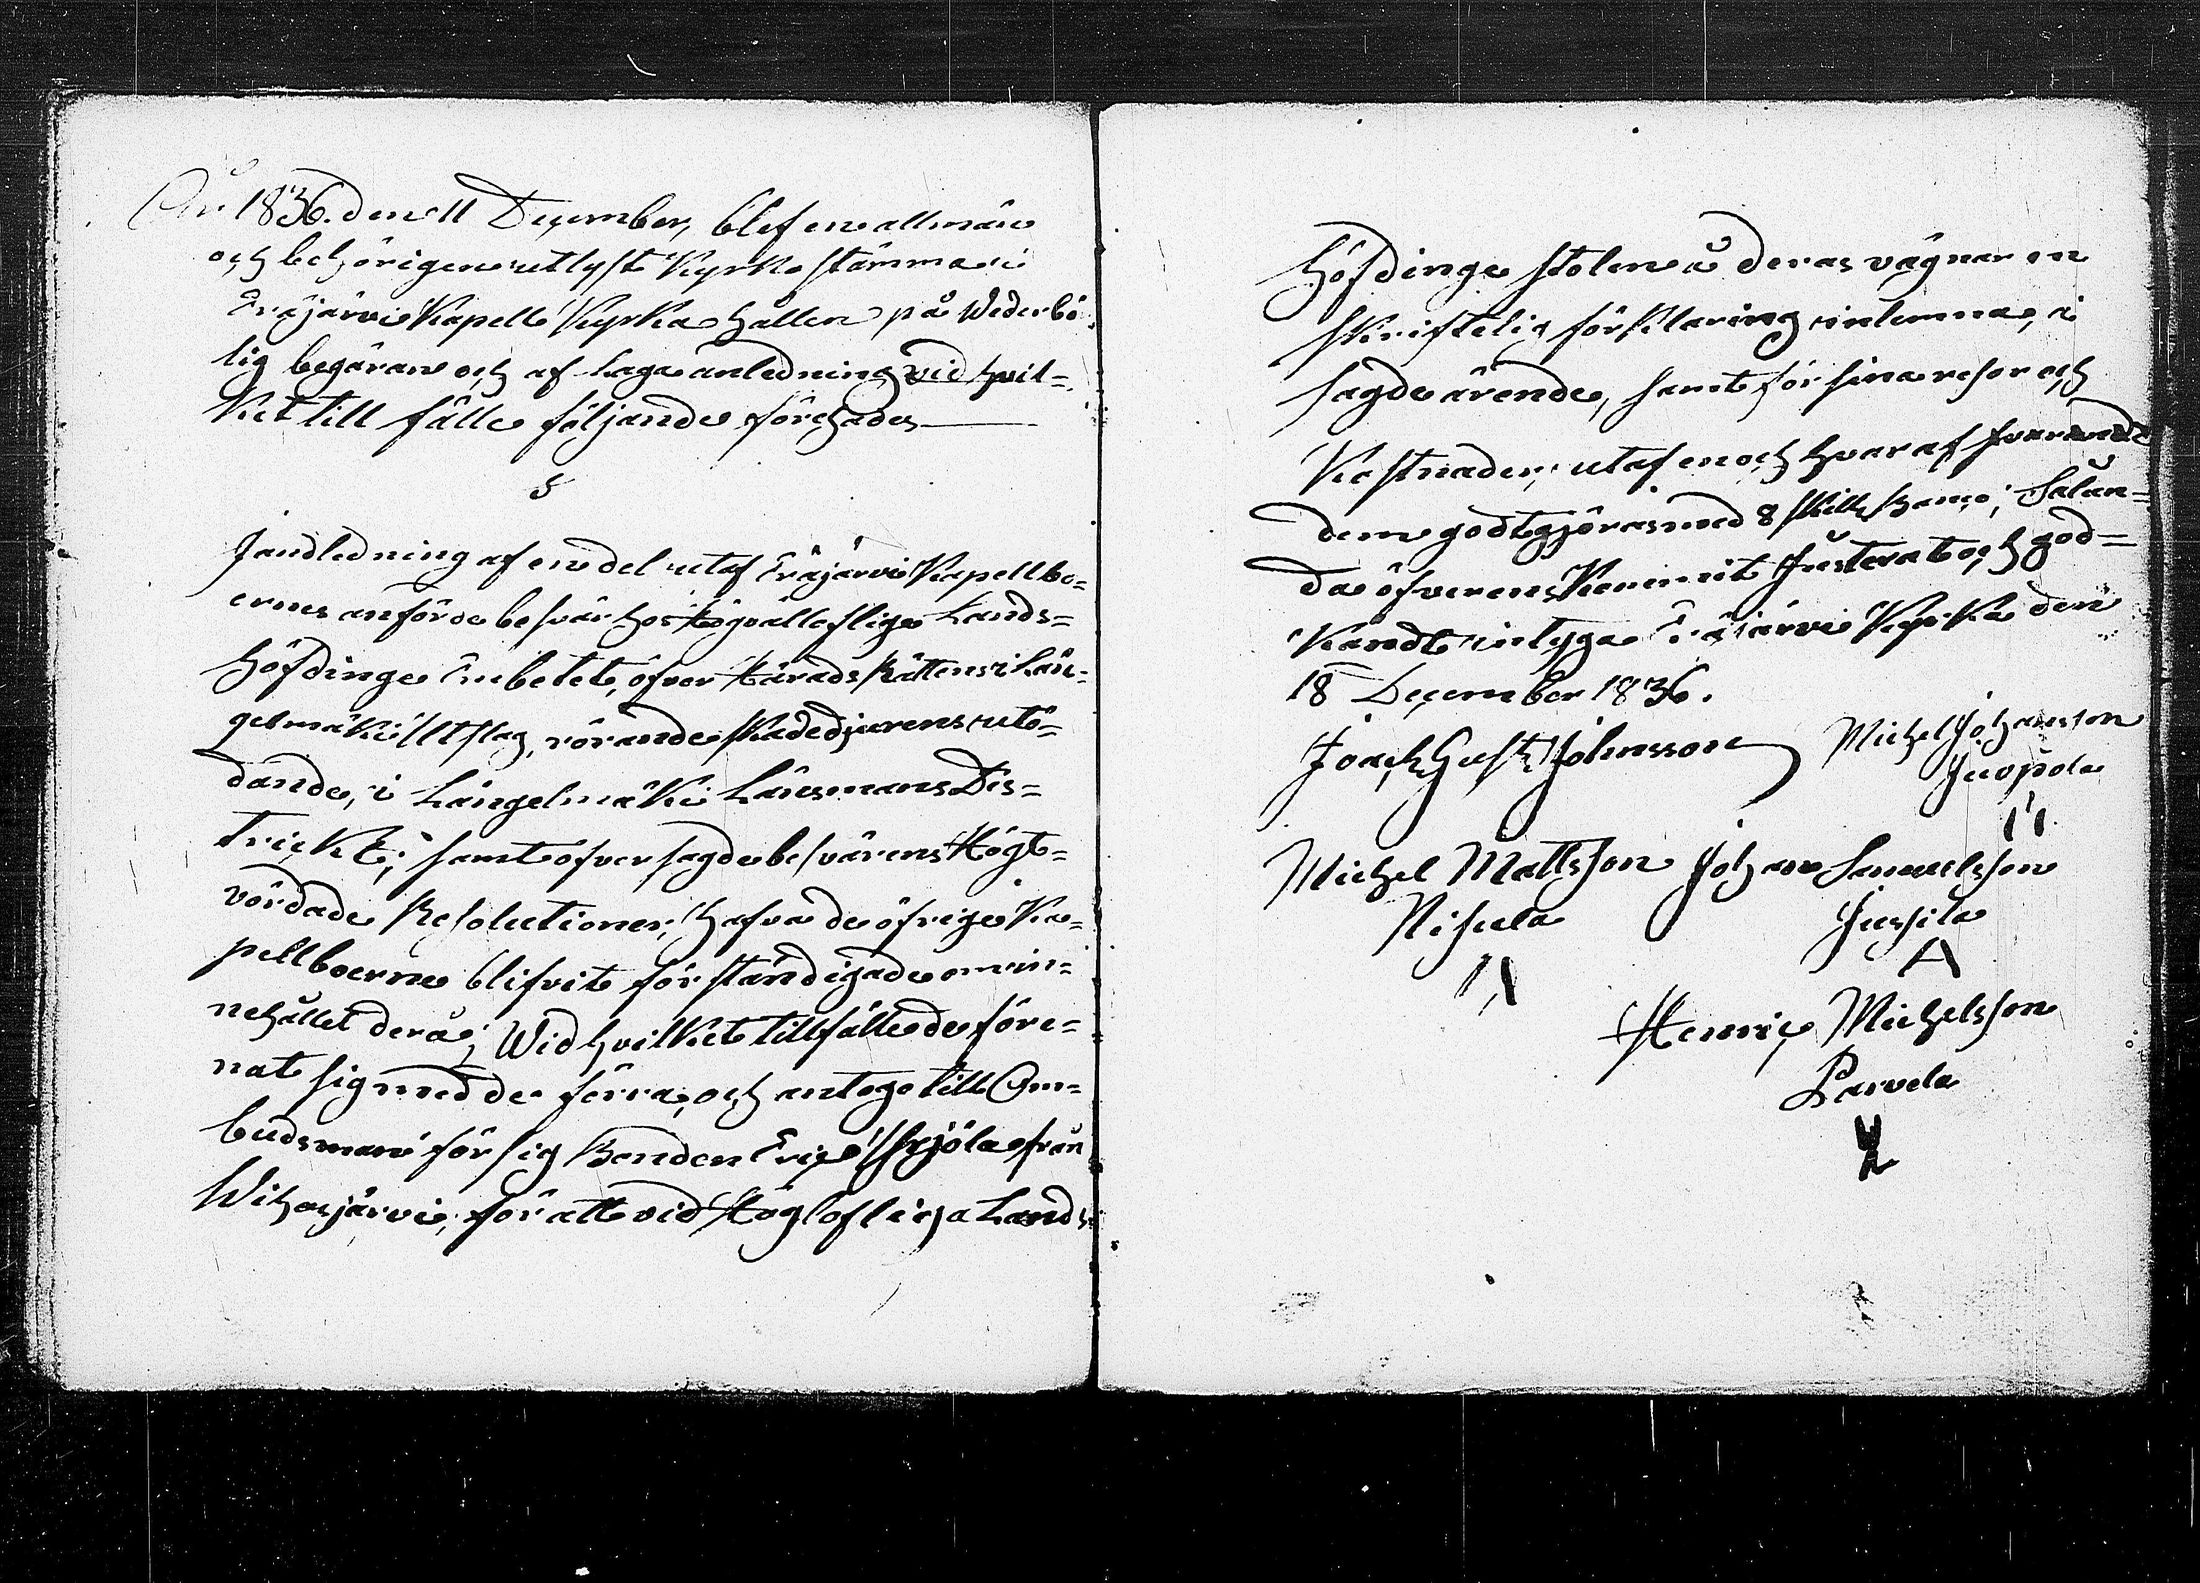 År 1836. den 11 December, blef en allmän
och behörigen utlyst Kyrko stämma i
Eräjärvi Kapell Kyrka hållen på Wederbö-
lig begäran och af Laga anledning vid hvil=
Ket till fälle följande förehades
§
I anledning af en del utaf Eräjärvi Kapellbo=
ernes anförde besvär hos Högvällofliga Lands=
höfdinge Embetet, öfver Härads Rättens i Län=
gelmäki Utslag, rörande Skadedjurens utö=
dande, i Längelmäki Länsmans Dis=
trickt; samt öfver sagde besvärens Högt=
vördade Resolutioner; hafva de öfriga Ka=
pellboerne blifvit förständigade om in=
nehållet deraf; Wid hvilket tillfälle de före=
nat sig med de förra, och antogo till Om=
budsman för sig Bonden Eric Yrjölä från
Wihasjärvi, för att vid Högloflliga Lands
höfdinge stolen å deras vägnar en
Skriftelig förklaring inlemna, i
sagde ärende, samt för sina resor och
Kostnader; utaf en och hvar af
dem godtgjöras med 8 skill. Banco; Sålun=
da öfverens Kommit Justerat och god=
Kändt intyga Eräjärvi Kyrka den
18 December 1836.
Joach Gust Johnsson Michel Johansson
Juopola
Michel Mattsson Johan Samuelsson
Nisula Jussila
Henric Michelsson
Parvela